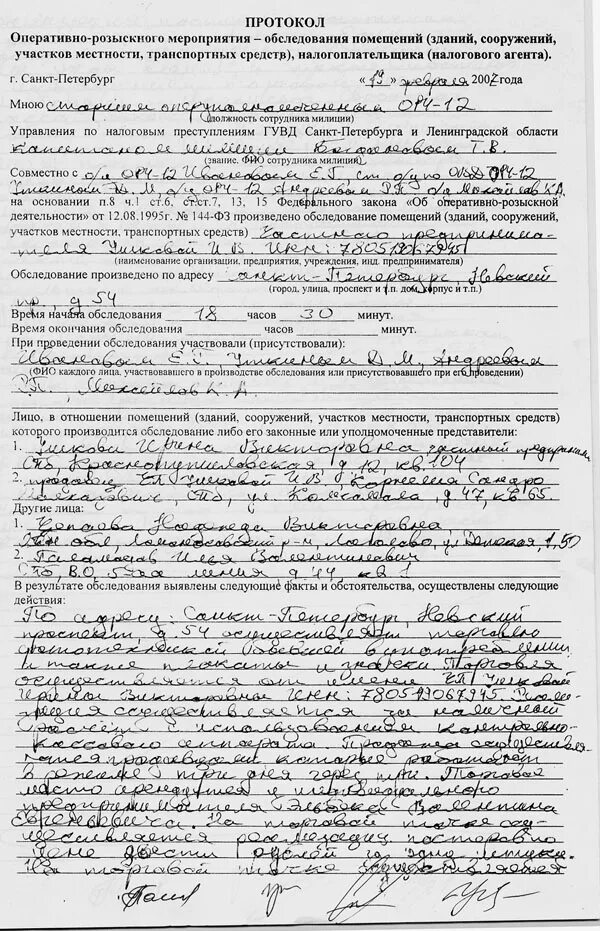 ПРОТОКОЛ
Оперативно-розыскного мероприятия – обследования помещений (зданий, сооружений,
участков местности, транспортных средств), налогоплательщика (налогового агента).
г. Санкт-Петербург « 19 » февраля 2007 года
Мною старшим оперуполномоченным ОРЧ-12
(должность сотрудника милиции)
Управления по налоговым преступлениям ГУВД Санкт-Петербурга и Ленинградской области
капитаном милиции Т.В.
(звание, ФИО сотрудника милиции)
Совместно с о/у ОРЧ-12 Ивановым Е.Г, ст о/у по ОРЧ-12
Уткиным Д.М, о/у ОРЧ-12 Андреевым Р.П о/у
на основании п.8 ч.1 ст.6, ст.ст.7, 13, 15 Федерального закона «Об оперативно-розыскной
деятельности» от 12.08.1995г. № 144-ФЗ произведено обследование помещений (зданий, сооружений,
участков местности, транспортных средств) частного предпринима-
теля И.В. ИНН:
(наименование организации, предприятия, учреждения, инд. предпринимателя)
Обследование произведено по адресу Санкт-Петербург, Невский
(город, улица, проспект и т.п. дом, корпус и т.п.)
пр, д 54
Время начала обследования 18 часов 30 минут.
Время окончания обследования часов минут.
При проведении обследования участвовали (присутствовали):
Ивановым Е.Г, Уткиным Д.М, Андреевым
(ФИО каждого лица, участвовавшего в производстве обследования или присутствовавшего при его проведении)
Р.П.
Лицо, в отношении помещений (зданий, сооружений, участков местности, транспортных средств)
которого производится обследование либо его законные или уполномоченные представители:
1. Ирина Викторовна частный предприним
СПб, Краснопутиловская, д 12, кв. 104
2. продавец И.В,
СПб, ул. д 47, кв 65.
Другие лица:
1. Надежда Викторовна,
Лен обл, Ломоносовский р-н,
2. Илья Валентинович
СПб, В.О, линия д 44 кв 1
В результате обследования выявлены следующие факты и обстоятельства, осуществлены следующие
действия:
По адресу: Санкт-Петербург, Невский
проспект, д. 54 осуществляет торговлю
фототехникой бывшей в употреблении
и также плакаты и значки. Торговля
осуществляется от имени
Ирины Викторовны ИНН:
осуществляется за наличный
расчёт с использованием контрольно-
кассового аппарата. Продажа осуществля-
ется продавцами которые работают
в режиме три дня через три. Торговое
место арендуется у индивидуального
предпринимателя Валентина
Евгеньевича. На торговой точке осу-
ществляется реализация постеров по
цене двести рублей за одну штуку.
На торговой точке осуществляется